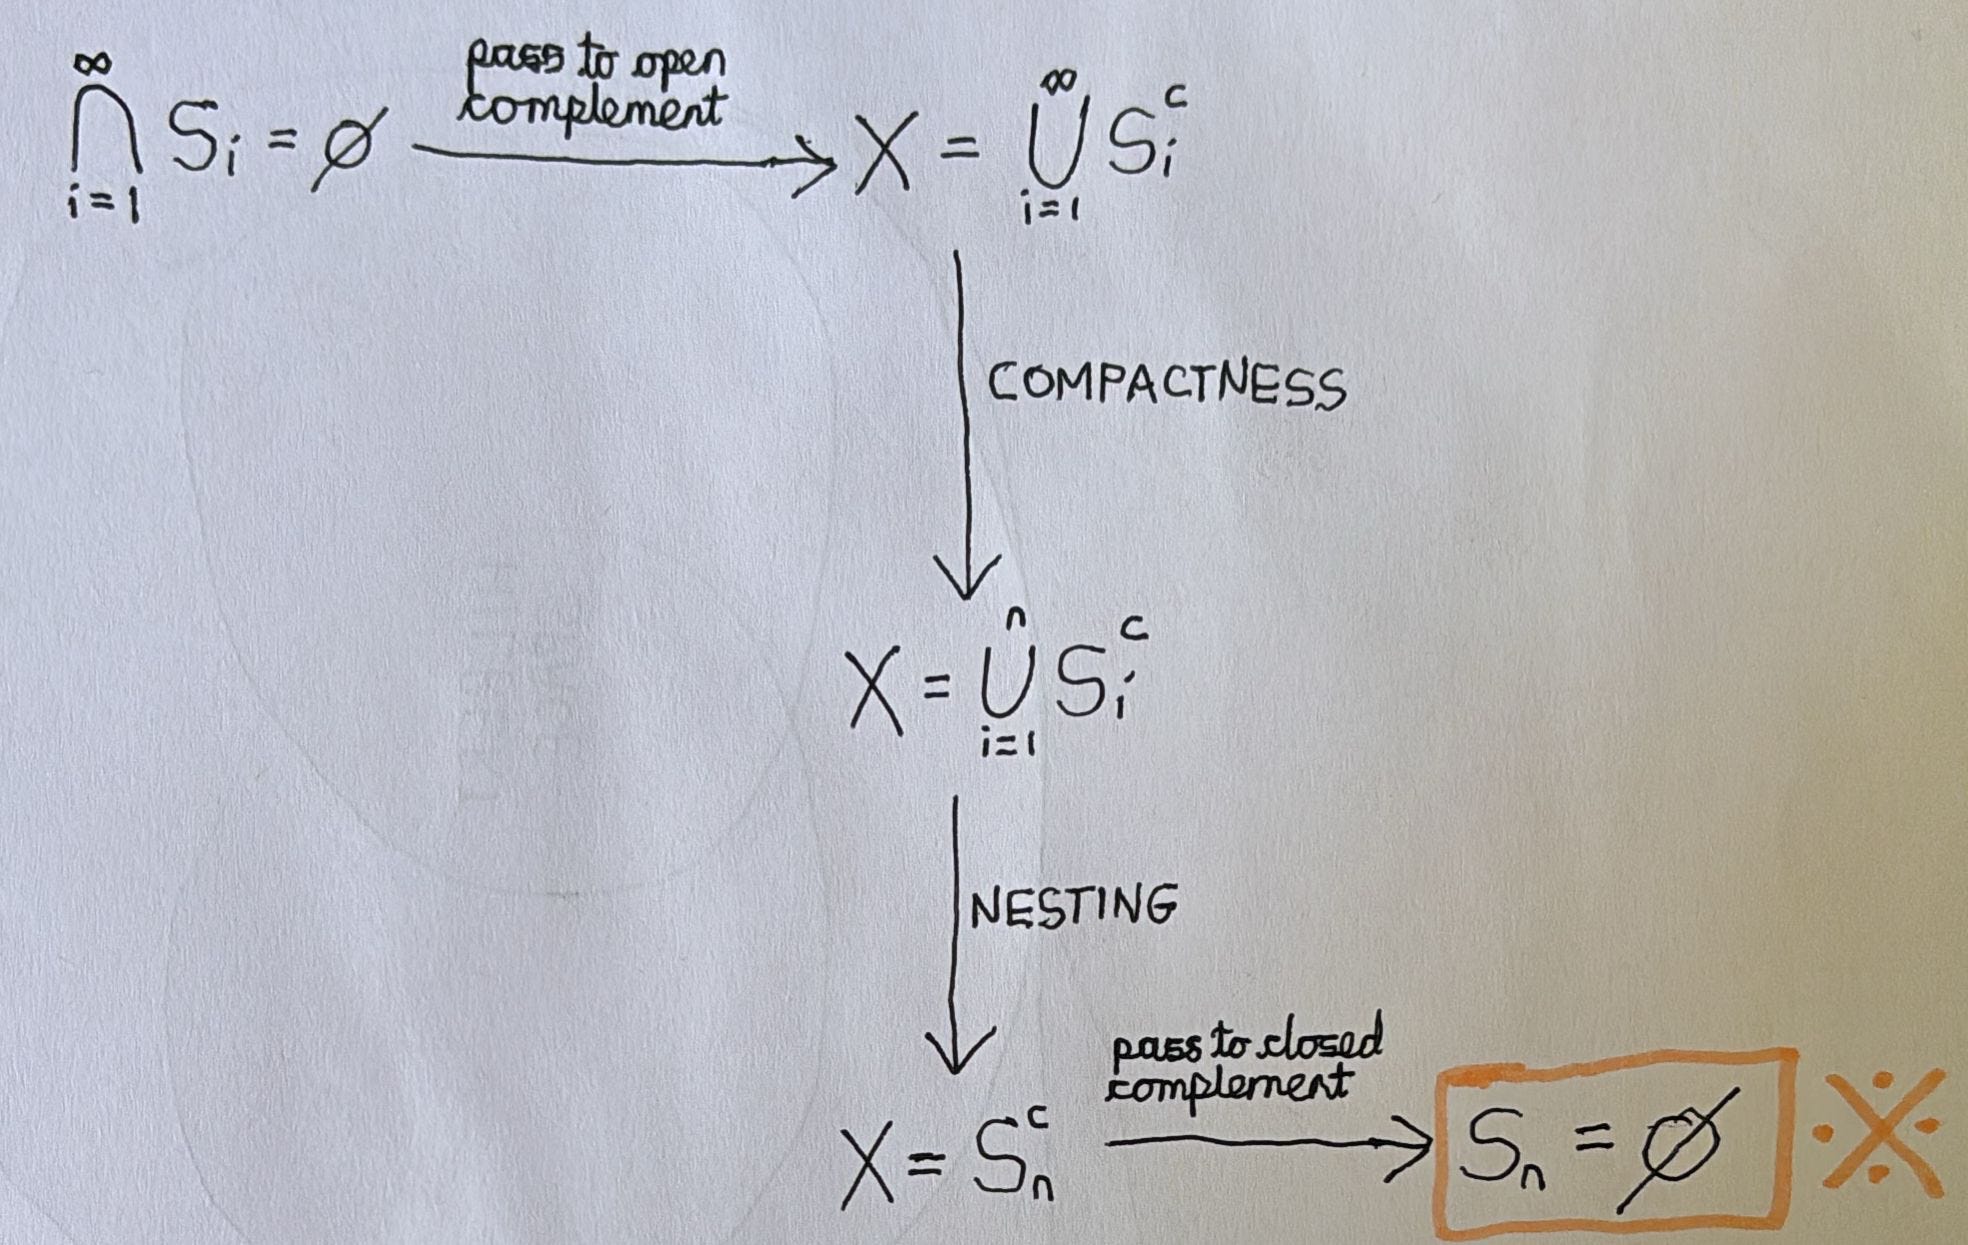 ⋂_{i=1}^{∞} S_i = ∅
pass to open
complement
X = ⋃_{i=1}^{∞} S_i^c
COMPACTNESS
X = ⋃_{i=1}^{n} S_i^c
NESTING
X = S_n^c
pass to closed
complement
S_n = ∅ ※